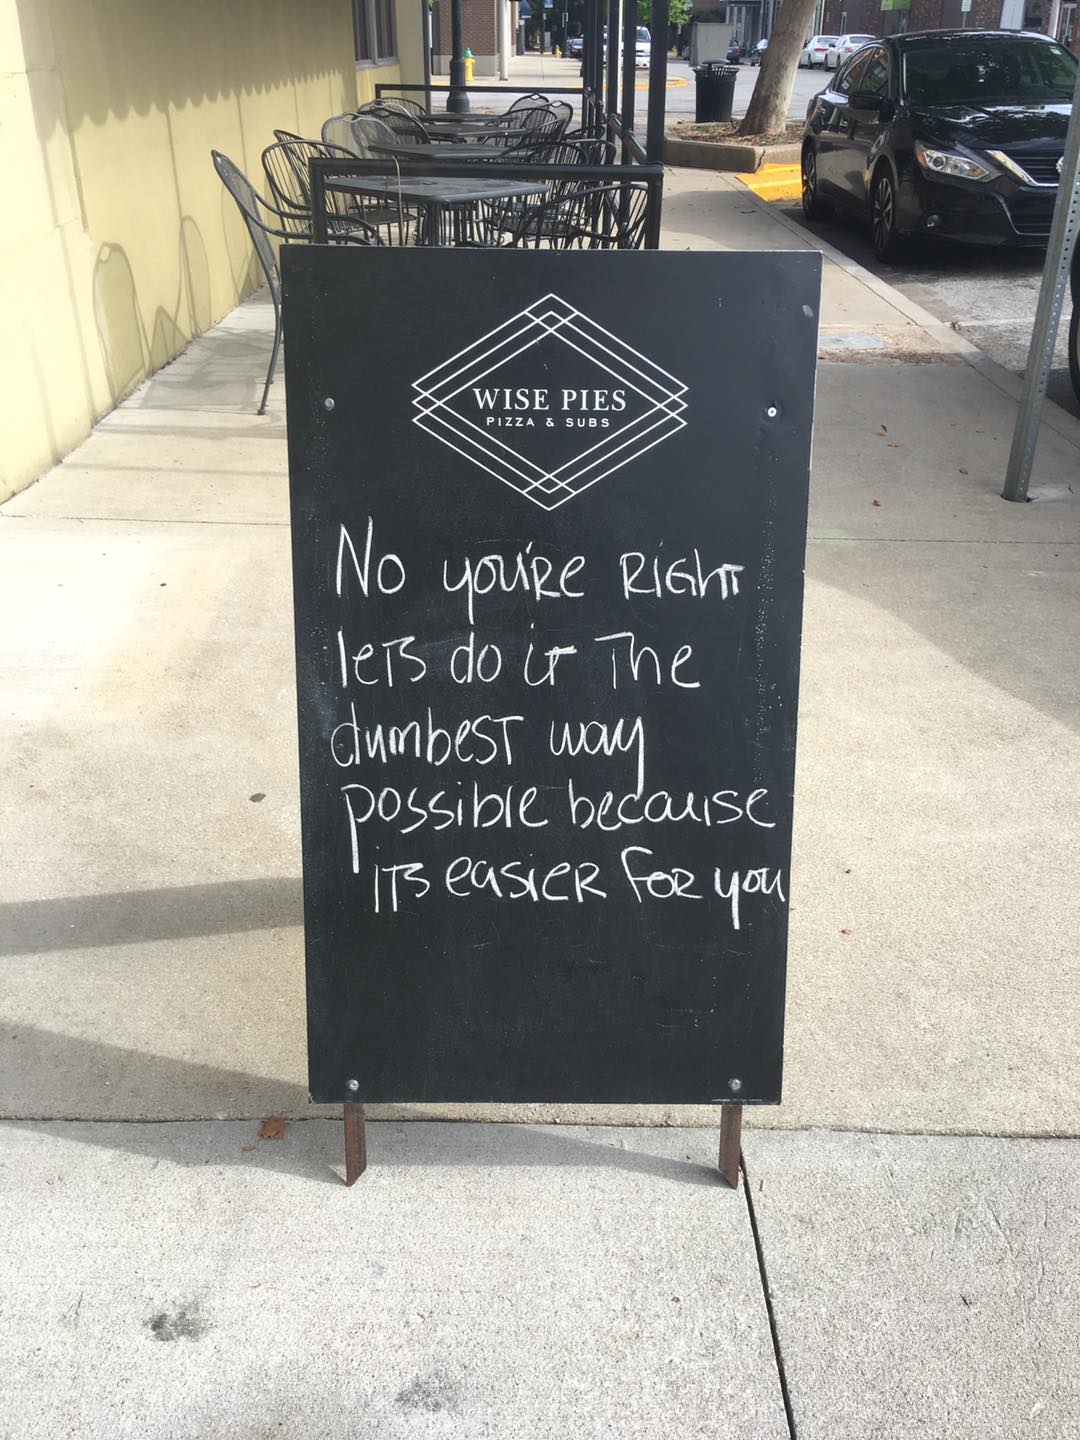 WISE PIES
PIZZA & SUBS
No you're Right
lets do it The
dumbest way
possible because
its easier for you